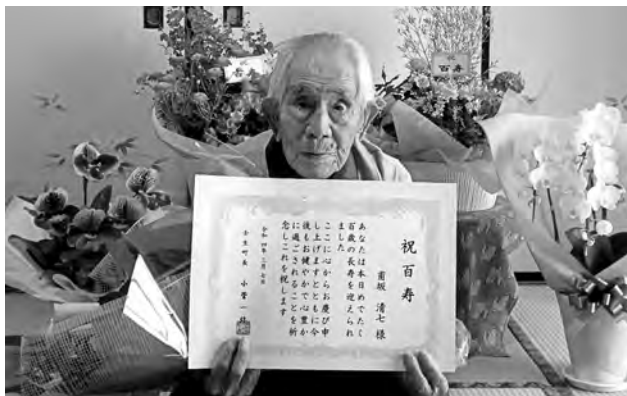 祝
百寿
祝百寿
坂 清七 様
あなたは本日めでたく
百歳の長寿を迎えられ
ました
ここに心からお慶び申
し上げますとともに今
後もお健やかで心豊か
に過ごされることを祈
念しこれを祝します
令和四年 月七日
壬生町長 小菅一弥